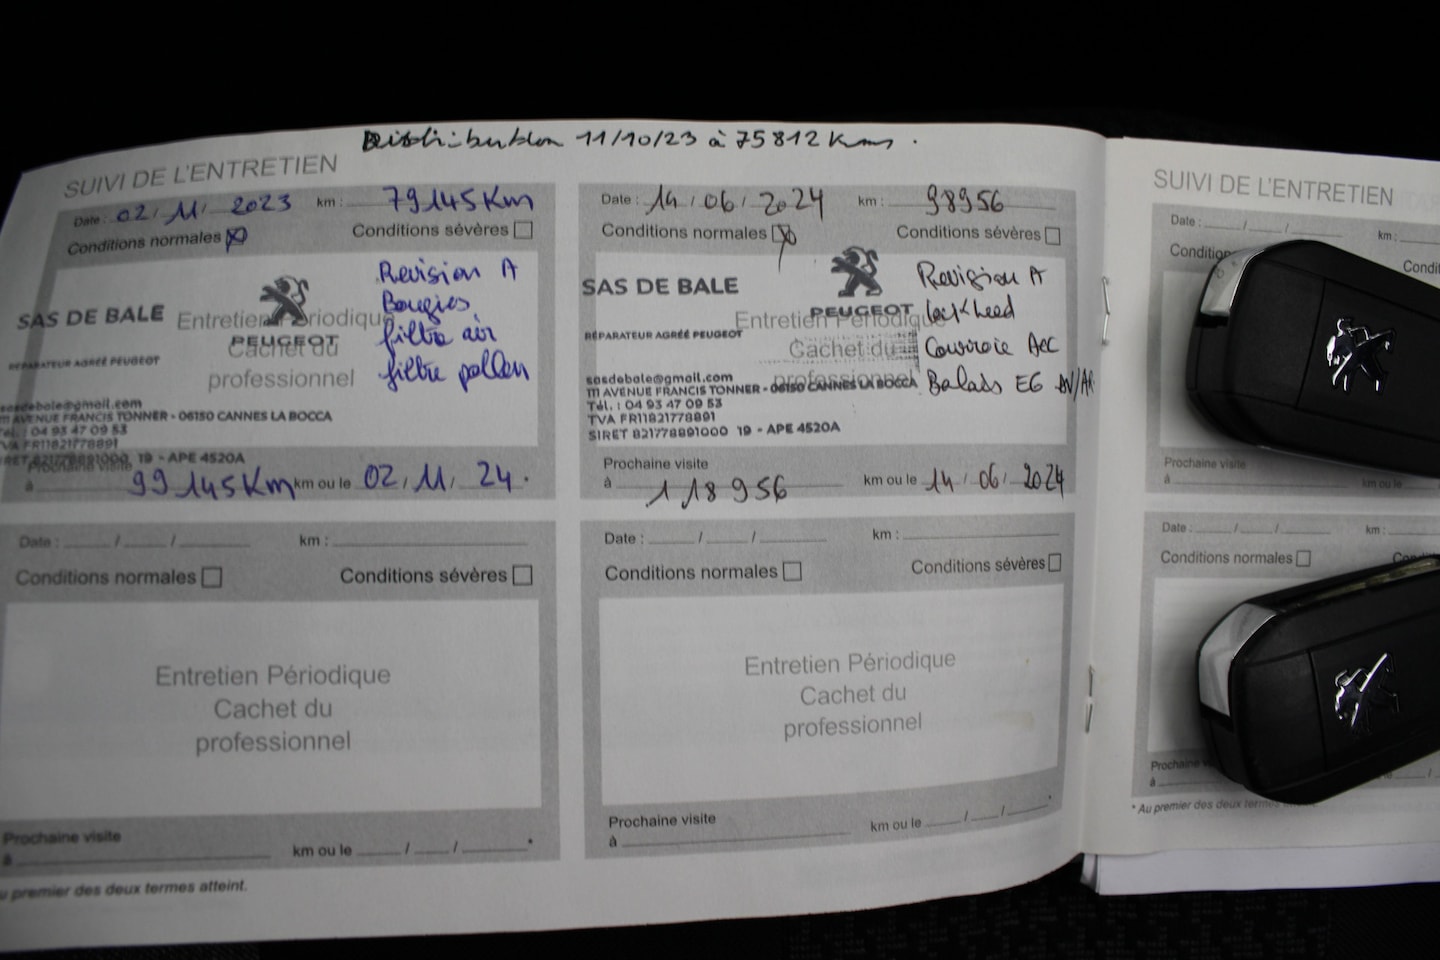 Distribution 11/10/23 à 75812 Kms.
SUIVI DE L'ENTRETIEN
Date : 02 / 11 / 2023 km : 79145 Km
Conditions normales Conditions sévères
Revision A
Bougies
filtre air
filtre pollen
SAS DE BALE
PEUGEOT
RÉPARATEUR AGRÉÉ PEUGEOT
Entretien Périodique
Cachet du
professionnel
sasdebale@gmail.com
111 AVENUE FRANCIS TONNER - 06150 CANNES LA BOCCA
Tél. : 04 93 47 09 53
TVA FR11821778891
SIRET 821778891000 19 - APE 4520A
Prochaine visite
à 99145 Km km ou le 02 / 11 / 24 .
Date : / / km :
Conditions normales Conditions sévères
Entretien Périodique
Cachet du
professionnel
Prochaine visite
à km ou le / / *
au premier des deux termes atteint.
Date : 14 / 06 / 2024 km : 98956
Conditions normales Conditions sévères
Revision A
Lockheed
Courroie Acc
Balais EG AV/AR
SAS DE BALE
PEUGEOT
RÉPARATEUR AGRÉÉ PEUGEOT
Entretien Périodique
Cachet du
professionnel
sasdebale@gmail.com
111 AVENUE FRANCIS TONNER - 06150 CANNES LA BOCCA
Tél. : 04 93 47 09 53
TVA FR11821778891
SIRET 821778891000 19 - APE 4520A
Prochaine visite
à 118956 km ou le 14 / 06 / 2024
Date : / / km :
Conditions normales Conditions sévères
Entretien Périodique
Cachet du
professionnel
Prochaine visite
à km ou le / / *
SUIVI DE L'ENTRETIEN
Date : / / km :
Prochaine visite
à km ou le
Date : / / km :
Conditions normales
Prochaine
à
* Au premier des deux termes